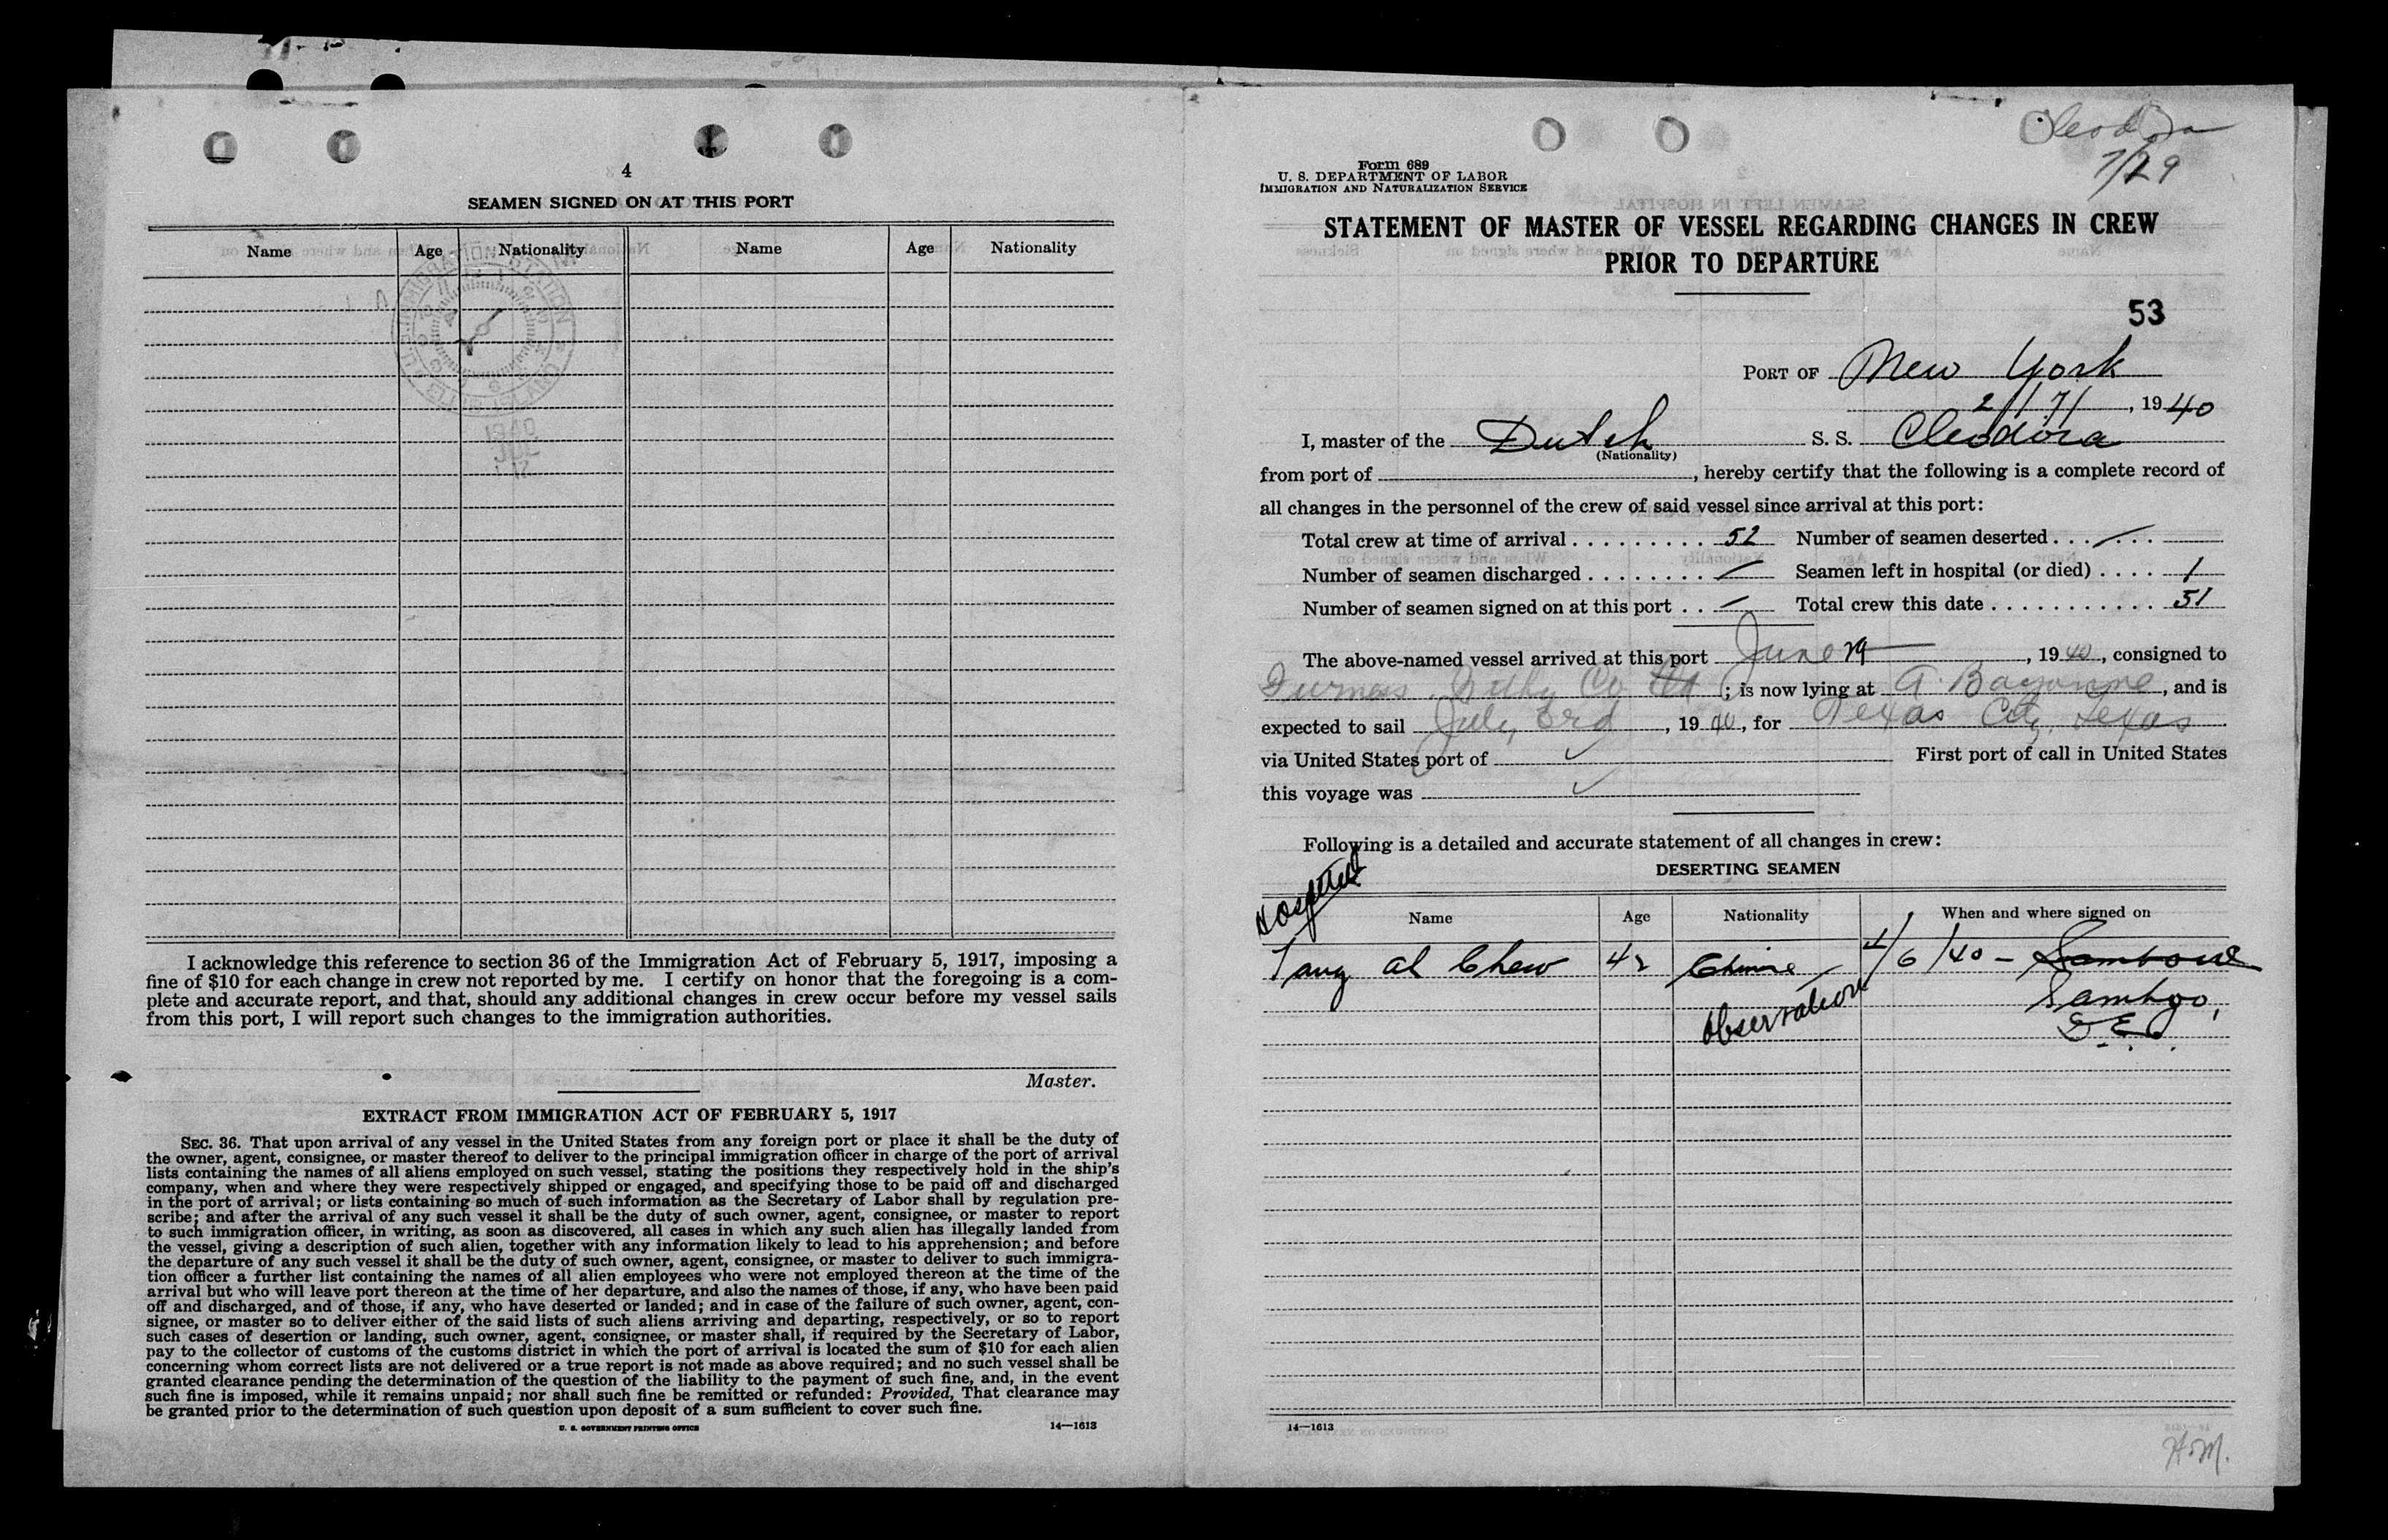 4
SEAMEN SIGNED ON AT THIS PORT
Name Age Nationality Name Age Nationality
1940
JUL
I acknowledge this reference to section 36 of the Immigration Act of February 5, 1917, imposing a
fine of $10 for each change in crew not reported by me. I certify on honor that the foregoing is a com-
plete and accurate report, and that, should any additional changes in crew occur before my vessel sails
from this port, I will report such changes to the immigration authorities.
Master.
EXTRACT FROM IMMIGRATION ACT OF FEBRUARY 5, 1917
SEC. 36. That upon arrival of any vessel in the United States from any foreign port or place it shall be the duty of
the owner, agent, consignee, or master thereof to deliver to the principal immigration officer in charge of the port of arrival
lists containing the names of all aliens employed on such vessel, stating the positions they respectively hold in the ship's
company, when and where they were respectively shipped or engaged, and specifying those to be paid off and discharged
in the port of arrival; or lists containing so much of such information as the Secretary of Labor shall by regulation pre-
scribe; and after the arrival of any such vessel it shall be the duty of such owner, agent, consignee, or master to report
to such immigration officer, in writing, as soon as discovered, all cases in which any such alien has illegally landed from
the vessel, giving a description of such alien, together with any information likely to lead to his apprehension; and before
the departure of any such vessel it shall be the duty of such owner, agent, consignee, or master to deliver to such immigra-
tion officer a further list containing the names of all alien employees who were not employed thereon at the time of the
arrival but who will leave port thereon at the time of her departure, and also the names of those, if any, who have been paid
off and discharged, and of those, if any, who have deserted or landed; and in case of the failure of such owner, agent, con-
signee, or master so to deliver either of the said lists of such aliens arriving and departing, respectively, or so to report
such cases of desertion or landing, such owner, agent, consignee, or master shall, if required by the Secretary of Labor,
pay to the collector of customs of the customs district in which the port of arrival is located the sum of $10 for each alien
concerning whom correct lists are not delivered or a true report is not made as above required; and no such vessel shall be
granted clearance pending the determination of the question of the liability to the payment of such fine, and, in the event
such fine is imposed, while it remains unpaid; nor shall such fine be remitted or refunded: Provided, That clearance may
be granted prior to the determination of such question upon deposit of a sum sufficient to cover such fine.
U. S. GOVERNMENT PRINTING OFFICE 14—1613
Cleodora
7/29
Form 689
U. S. DEPARTMENT OF LABOR
IMMIGRATION AND NATURALIZATION SERVICE
STATEMENT OF MASTER OF VESSEL REGARDING CHANGES IN CREW
PRIOR TO DEPARTURE
53
PORT OF New York
2/7/, 1940
I, master of the Dutch S. S. Cleodora
(Nationality)
from port of , hereby certify that the following is a complete record of
all changes in the personnel of the crew of said vessel since arrival at this port:
Total crew at time of arrival . . . . . . . . . 52 Number of seamen deserted . . . — . . .
Number of seamen discharged . . . . . . . . — Seamen left in hospital (or died) . . . . 1
Number of seamen signed on at this port . . — Total crew this date . . . . . . . . . . . . 51
The above-named vessel arrived at this port June 29, 1940, consigned to
Furness Withy Co ; is now lying at Bayonne, and is
expected to sail July 3rd, 1940, for Texas City, Texas
via United States port of ✓ First port of call in United States
this voyage was ✓
Following is a detailed and accurate statement of all changes in crew:
DESERTING SEAMEN
Hospital
Name Age Nationality When and where signed on
Tang Ah Chew 42 Chinese 4/6/40 –
Observation Samboo,
D.E.I.
14—1613
H.M.